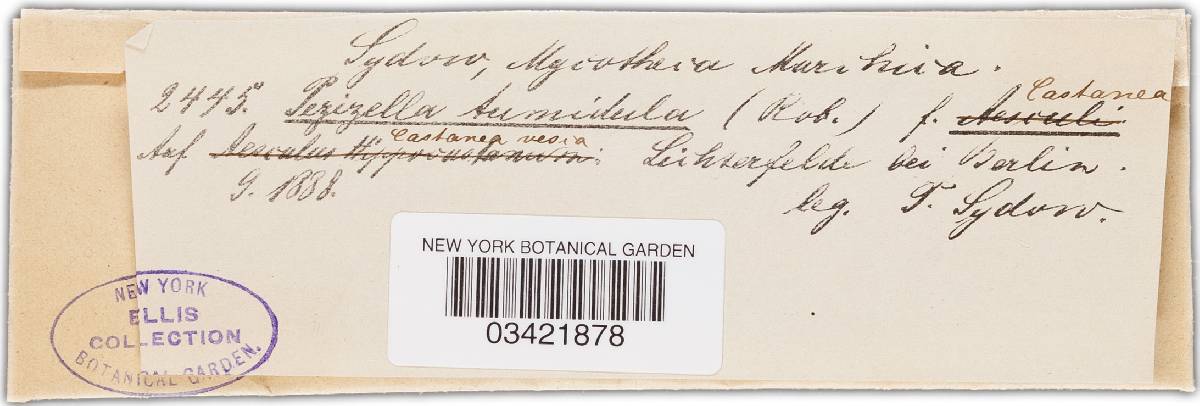 Sydow, Mycotheca Marchica.
2445. Pezizella tumidula (Rob.) f. Aesculi Castanea
Auf Aesculus Hippocastanum: Castanea vesca Lichterfelde bei Berlin.
9. 1888.
leg. P. Sydow.
NEW YORK BOTANICAL GARDEN
03421878
NEW YORK
ELLIS
COLLECTION
BOTANICAL GARDEN.